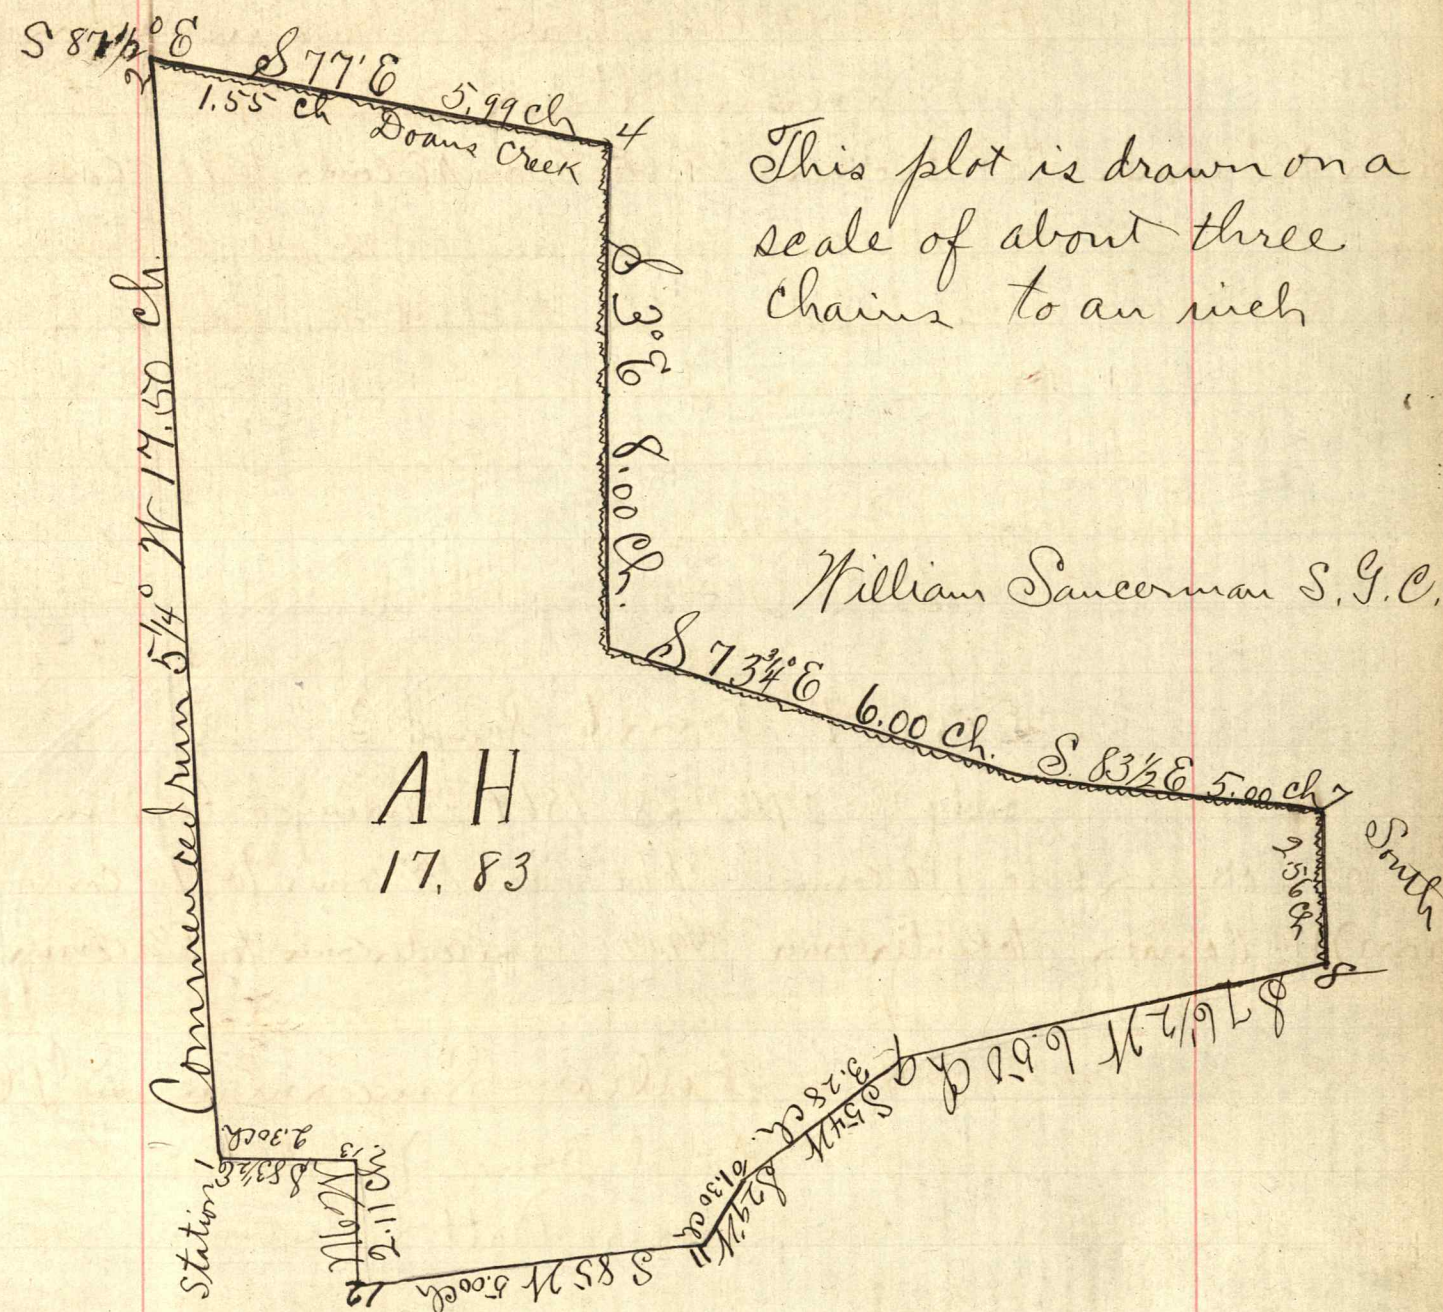 S 87½° E
2
S 77' E 5.99 ch
1.55 ch
Doans Creek
4
This plot is drawn on a
scale of about three
Chains to an inch
S 3° E 8.00 Ch.
Commenced run 5¼° W 17.50 ch.
William Saucerman S.G.C.
S 73¾° E 6.00 Ch. S. 83½ E 5.00 ch 7
South
2.56 ch
8
A H
17.83
S 76½ W 6.50 Ch 9
S 54 W
3.28 ch.
10
S 29 W
1.30 ch
11
S 85 W 5.00 ch
12
North
2.11 ch
13
S 83½ E
2.30 ch.
Station 1